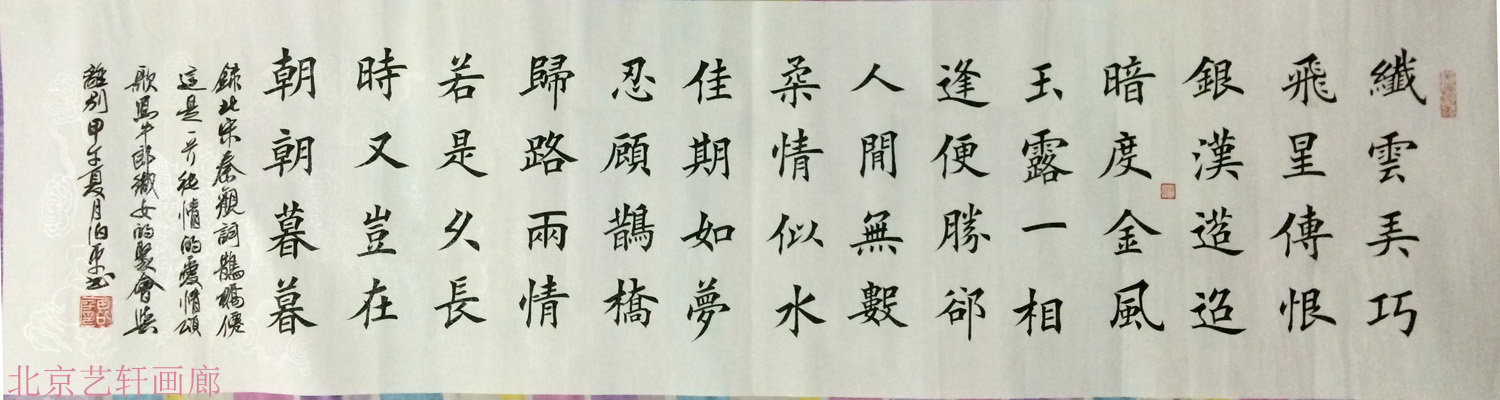 纖雲弄巧
飛星傳恨
銀漢迢迢
暗度金風
玉露一相
逢便勝卻
人閒無數
柔情似水
佳期如夢
忍顧鵲橋
歸路兩情
若是久長
時又豈在
朝朝暮暮
錄北宋秦觀詞鵲橋僊
這是一首純情的愛情頌
歌寫牛郎織女的聚會與
離別甲午夏月伯平书
北京艺轩画廊